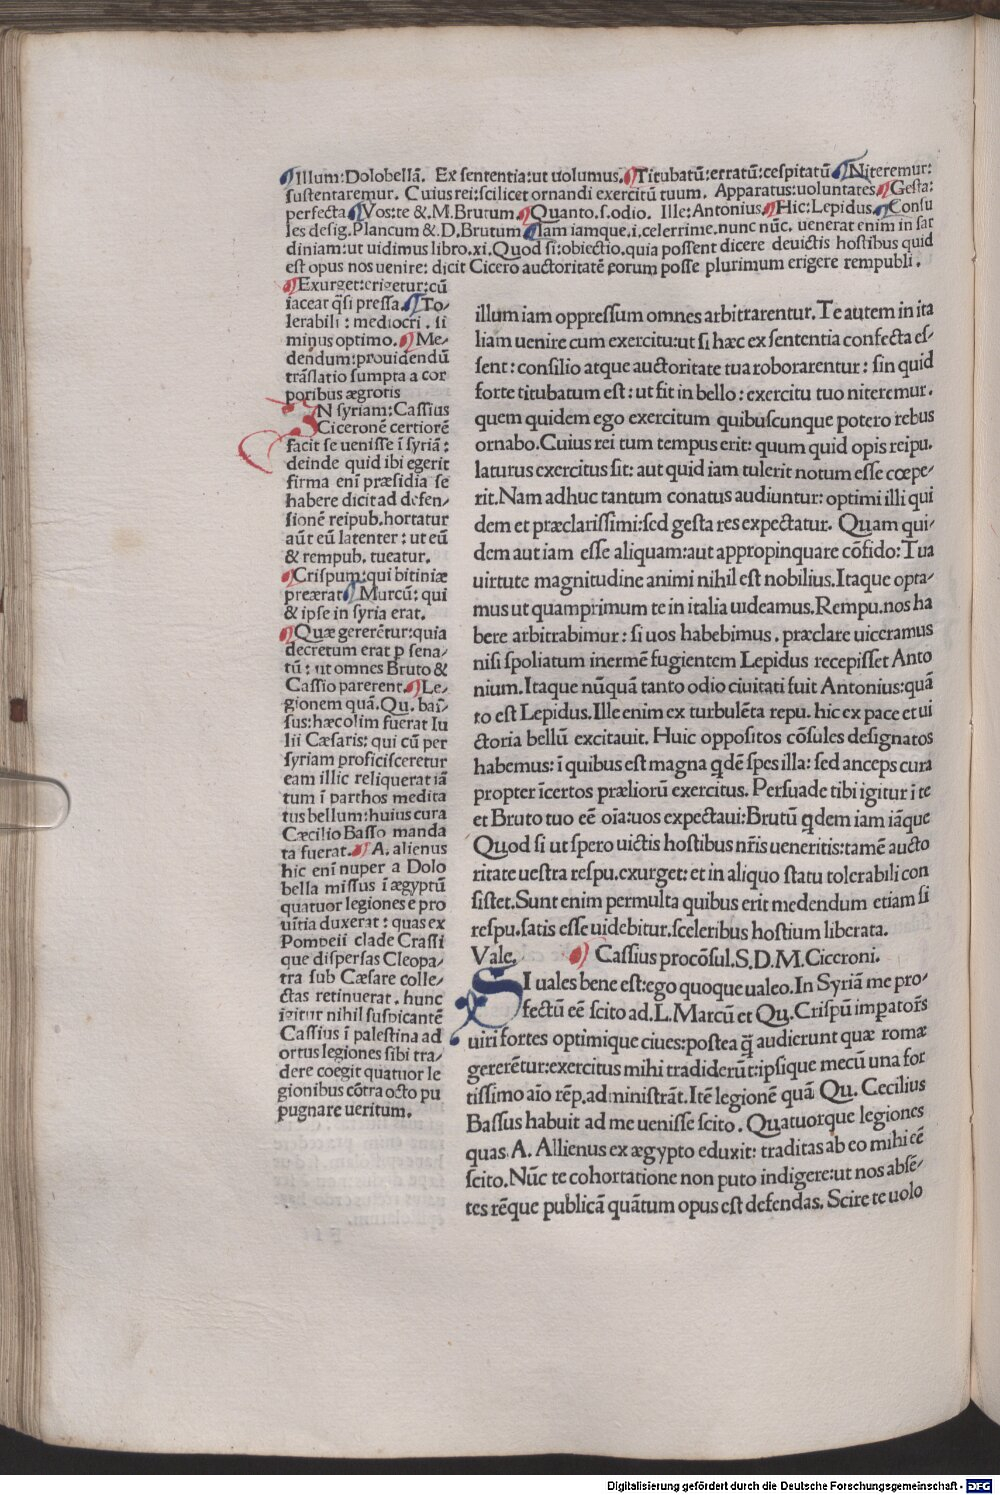 ¶Illum:Dolobellā. Ex sententia:ut uolumus.¶Titubatū:erratū:cespitatū¶Niteremur:
sustentaremur. Cuius rei:scilicet ornandi exercitū tuum. Apparatus:uoluntates¶Gesta:
perfecta¶Vos:te &.M.Brutum.¶Quanto.s.odio. Ille:Antonius¶Hic:Lepidus.¶Consu
les desig.Plancum &.D.Brutum¶Iam iamque.i.celerrime.nunc nūc. uenerat enim in sar
diniam:ut uidimus libro.xi.Quod si:obiectio.quia possent dicere deuictis hostibus quid
est opus nos uenire: dicit Cicero auctoritatē eorum posse plurimum erigere rempubli.
¶Exurget:erigetur:cū
iaceat q̄si pressa.¶To-
lerabili : mediocri . si
minus optimo.¶Me-
dendum:prouidendū
trāslatio sumpta a cor
poribus ægrotis
IN syriam:Cassius
Ciceronē certiorē
facit se uenisse ī syriā :
deinde quid ibi egerit
firma enī præsidia se
habere dicit ad defen-
sionē reipub.hortatur
aūt eū latenter : ut eū
& rempub. tueatur.
¶Crispum:qui bitiniæ
preærat¶Murcū: qui
& ipse in syria erat.
¶Quæ gererētur:quia
decretum erat p sena-
tū : ut omnes Bruto &
Cassio parerent.¶Le-
gionem quā.Qu. bas-
sus:hæc olim fuerat Iu
lii Cæsaris: qui cū per
syriam proficisceretur
eam illic reliquerat iā
tum ī parthos medita
tus bellum:huius cura
Cæcilio Basso manda
ta fuerat.¶A. alienus
hic enī nuper a Dolo
bella missus ī ægyptū
quatuor legiones e pro
uītia duxerat : quas ex
Pompeii clade Crassi
que dispersas Cleopa-
tra sub Cæsare colle-
ctas retinuerat . hunc
igitur nihil suspicantē
Cassius ī palestina ad
ortus legiones sibi tra-
dere coegit quatuor le
gionibus cōtra octo pu
pugnare ueritum.
illum iam oppressum omnes arbitrarentur.Te autem in ita
liam uenire cum exercitu:ut si hæc ex sententia confecta es-
sent : consilio atque auctoritate tua roborarentur : sin quid
forte titubatum est : ut fit in bello : exercitu tuo niteremur.
quem quidem ego exercitum quibuscunque potero rebus
ornabo.Cuius rei tum tempus erit: quum quid opis reipu.
laturus exercitus sit: aut quid iam tulerit notum esse cœpe-
rit.Nam adhuc tantum conatus audiuntur: optimi illi qui
dem et præclarissimi:sed gesta res expectatur. Quam qui-
dem aut iam esse aliquam:aut appropinquare cōfido:Tua
uirtute magnitudine animi nihil est nobilius.Itaque opta-
mus ut quamprimum te in italia uideamus.Rempu.nos ha
bere arbitrabimur : si uos habebimus . præclare uiceramus
nisi spoliatum inermē fugientem Lepidus recepisset Anto
nium.Itaque nūquā tanto odio ciuitati fuit Antonius:quā
to est Lepidus.Ille enim ex turbulēta repu. hic ex pace et ui
ctoria bellū excitauit. Huic oppositos cōsules designatos
habemus: ī quibus est magna q̄dē spes illa: sed anceps cura
propter īcertos præliorū exercitus. Persuade tibi igitur ī te
et Bruto tuo eē oīa:uos expectaui:Brutū q̄dem iam iāque
Quod si ut spero uictis hostibus nr̄is ueneritis:tamē aucto
ritate uestra respu.exurget: et in aliquo statu tolerabili con
sistet.Sunt enim permulta quibus erit medendum etiam si
respu.satis esse uidebitur.sceleribus hostium liberata.
Vale. ¶ Cassius procōsul.S.D.M.Ciceroni.
SI uales bene est:ego quoque ualeo.In Syriā me pro-
fectū eē scito ad.L.Marcū et Qu.Crispū impator̄s
uiri fortes optimique ciues:postea q̄ audierunt quæ romæ
gererētur:exercitus mihi tradiderūt:ipsique mecū una for
tissimo aīo rēp.administrāt.Itē legionē quā Qu. Cecilius
Bassus habuit ad me uenisse scito . Quatuorque legiones
quas A. Allienus ex ægypto eduxit: traditas ab eo mihi eē
scito.Nūc te cohortatione non puto indigere:ut nos absē-
tes rēque publicā quātum opus est defendas. Scire te uolo
Digitalisierung gefördert durch die Deutsche Forschungsgemeinschaft - DFG